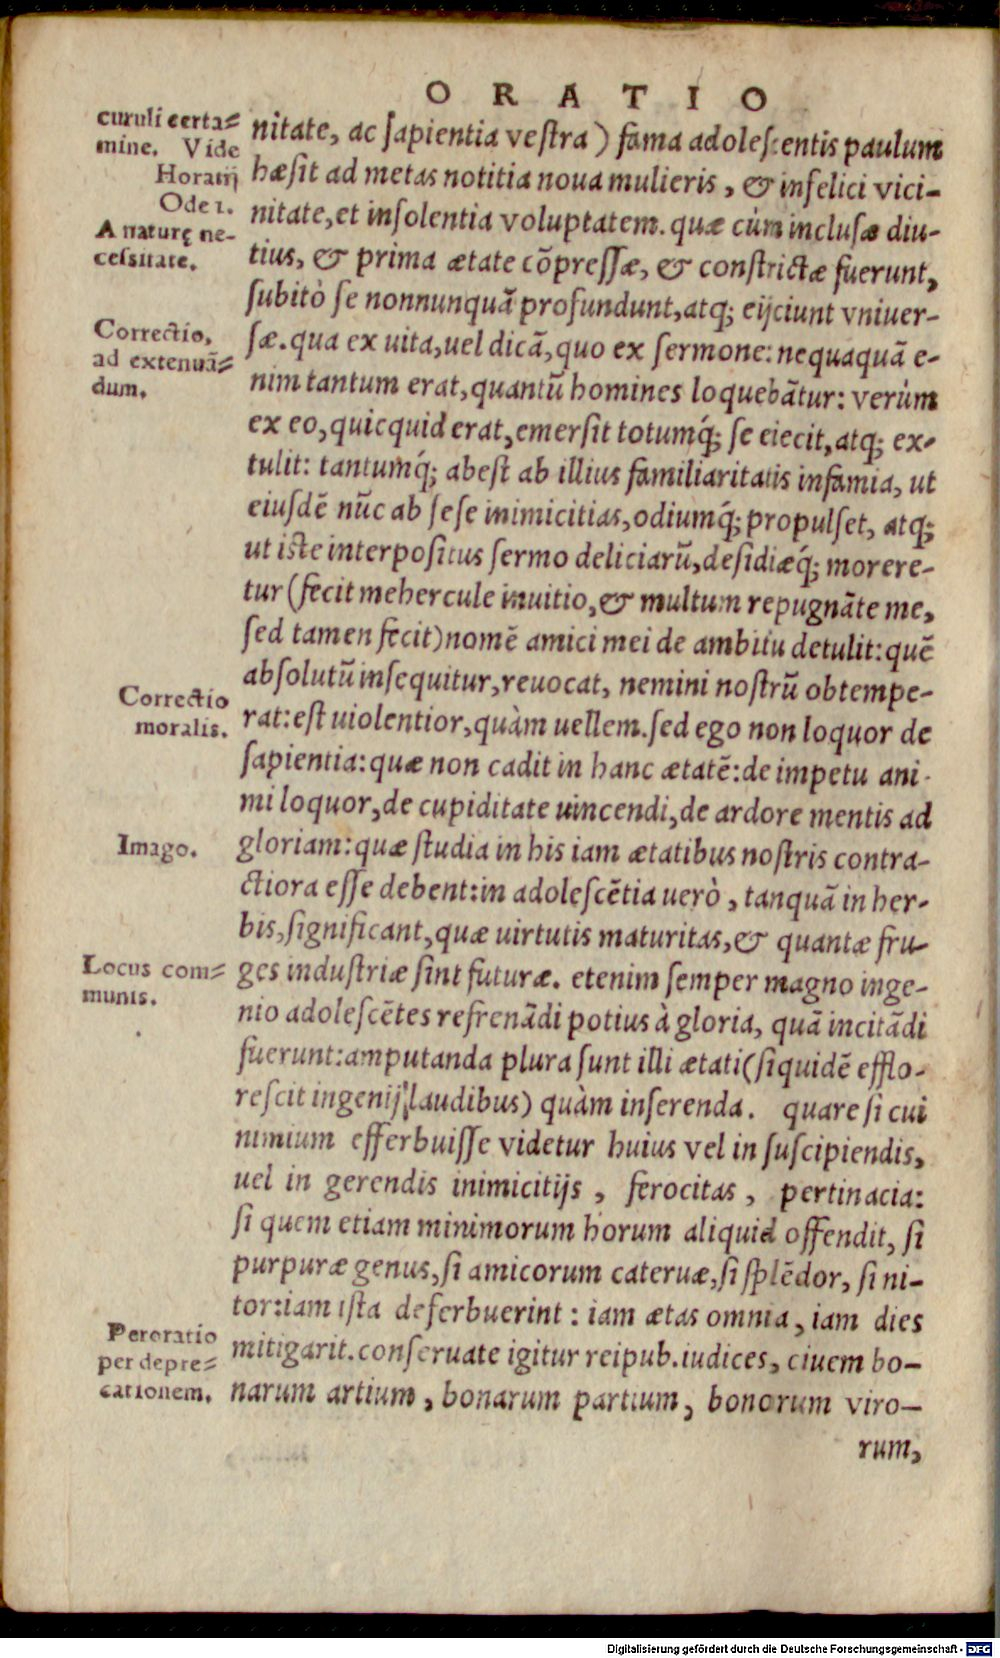 ORATIO
curuli certa=
mine. Vide
Horatij
Ode 1.
A naturę ne-
cessitate.
Correctio,
ad extenuã=
dum.
Correctio
moralis.
Imago.
Locus com=
munis.
Peroratio
per depre=
cationem.
nitate, ac sapientia vestra) fama adolescentis paulum
hæsit ad metas notitia noua mulieris, & infelici vici-
nitate, et insolentia voluptatem. quæ cùm inclusæ diu-
tius, & prima ætate cõpressæ, & constrictæ fuerunt,
subitò se nonnunquã profundunt, atq; eijciunt vniuer-
sæ. qua ex uita, uel dicã, quo ex sermone: nequaquã e-
nim tantum erat, quantũ homines loquebãtur: verùm
ex eo, quicquid erat, emersit totumq́; se eiecit, atq; ex-
tulit: tantumq́; abest ab illius familiaritatis infamia, ut
eiusdẽ nũc ab sese inimicitias, odiumq́; propulset, atq;
ut iste interpositus sermo deliciarũ, desidiæq́; morere-
tur (fecit mehercule inuitio, & multum repugnãte me,
sed tamen fecit) nomẽ amici mei de ambitu detulit: quẽ
absolutũ insequitur, reuocat, nemini nostrũ obtempe-
rat: est uiolentior, quàm uellem. sed ego non loquor de
sapientia: quæ non cadit in hanc ætatẽ: de impetu ani-
mi loquor, de cupiditate uincendi, de ardore mentis ad
gloriam: quæ studia in his iam ætatibus nostris contra-
ctiora esse debent: in adolescẽtia uerò, tanquã in her-
bis, significant, quæ uirtutis maturitas, & quantæ fru-
ges industriæ sint futuræ. etenim semper magno inge-
nio adolescẽtes refrenãdi potius à gloria, quã incitãdi
fuerunt: amputanda plura sunt illi ætati (siquidẽ efflo-
rescit ingenij laudibus) quàm inserenda. quare si cui
nimium efferbuisse videtur huius vel in suscipiendis,
uel in gerendis inimicitijs, ferocitas, pertinacia:
si quem etiam minimorum horum aliquid offendit, si
purpuræ genus, si amicorum cateruæ, si splẽdor, si ni-
tor: iam ista deferbuerint: iam ætas omnia, iam dies
mitigarit. conseruate igitur reipub. iudices, ciuem bo-
narum artium, bonarum partium, bonorum viro-
rum,
Digitalisierung gefördert durch die Deutsche Forschungsgemeinschaft - DFG